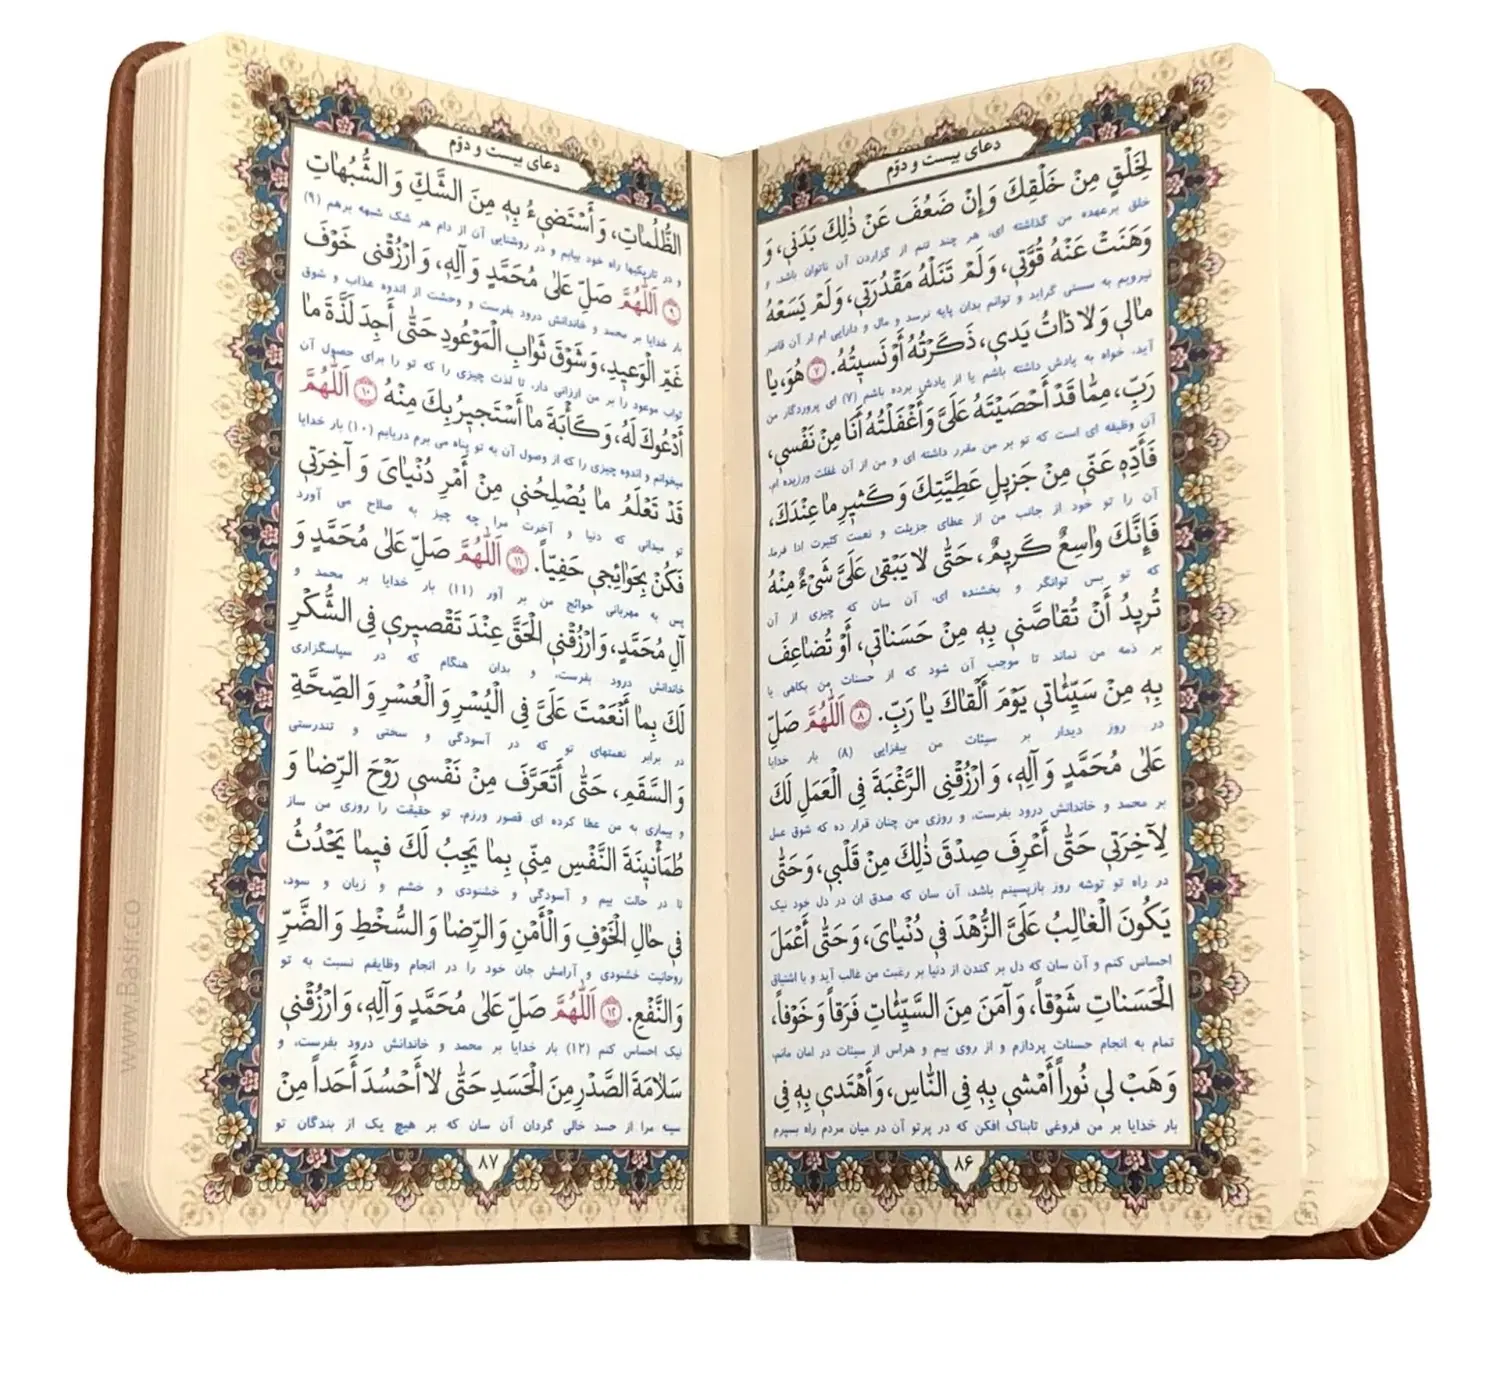 دعای بیست و دوّم
لِخَلْقٍ مِنْ خَلْقِكَ وَ إِنْ ضَعُفَ عَنْ ذٰلِكَ بَدَني، وَ
خلق برعهده من گذاشته ای، هر چند تنم از گزاردن آن ناتوان باشد، و
وَهَنَتْ عَنْهُ قُوَّتي، وَ لَمْ تَنَلْهُ مَقْدُرَتي، وَ لَمْ يَسَعْهُ
نیرویم به سستی گراید و توانم بدان پایه نرسد و مال و دارایی ام از آن قاصر
مالي وَ لا ذاتُ يَدي، ذَكَرْتُهُ أَوْ نَسيتُهُ. ٧ هُوَ، يا
آید، خواه به یادش داشته باشم یا از یادش برده باشم (٧) ای پروردگار من
رَبِّ، مِمّا قَدْ أَحْصَيْتَهُ عَلَيَّ وَ أَغْفَلْتُهُ أَنَا مِنْ نَفْسي،
آن وظیفه ای است که تو بر من مقرر داشته ای و من از آن غفلت ورزیده ام،
فَأَدِّهِ عَنّي مِنْ جَزيلِ عَطِيَّتِكَ وَ كَثيرِ ما عِنْدَكَ،
آن را تو خود از جانب من از عطای جزیلت و نعمت کثیرت ادا فرما،
فَإِنَّكَ واسِعٌ كَريمٌ، حَتّٰى لا يَبْقىٰ عَلَيَّ شَيْءٌ مِنْهُ
که تو بس توانگر و بخشنده ای، آن سان که چیزی از آن
تُريدُ أَنْ تُقاصَّني بِهِ مِنْ حَسَناتي، أَوْ تُضاعِفَ
بر ذمه من نماند تا موجب آن شود که از حسنات من بکاهی یا
بِهِ مِنْ سَيِّئاتي يَوْمَ أَلْقاكَ يا رَبِّ. ٨ اَللّٰهُمَّ صَلِّ
در روز دیدار بر سیئات من بیفزایی (٨) بار خدایا
عَلىٰ مُحَمَّدٍ وَ آلِهِ، وَ ارْزُقْنِي الرَّغْبَةَ فِي الْعَمَلِ لَكَ
بر محمد و خاندانش درود بفرست، و روزی من چنان قرار ده که شوق عمل
لِآخِرَتي حَتّٰى أَعْرِفَ صِدْقَ ذٰلِكَ مِنْ قَلْبي، وَ حَتّٰى
در راه تو توشه روز بازپسینم باشد، آن سان که صدق آن در دل خود نیک
يَكُونَ الْغالِبُ عَلَيَّ الزُّهْدَ في دُنْيايَ، وَ حَتّٰى أَعْمَلَ
احساس کنم و آن سان که دل بر کندن از دنیا بر رغبت من غالب آید و با اشتیاق
الْحَسَناتِ شَوْقاً، وَ آمَنَ مِنَ السَّيِّئاتِ فَرَقاً وَ خَوْفاً،
تمام به انجام حسنات پردازم و از روی بیم و هراس از سیئات در امان مانم،
وَ هَبْ لي نُوراً أَمْشي بِهِ فِي النّاسِ، وَ أَهْتَدي بِهِ فِي
بار خدایا بر من فروغی تابناک افکن که در پرتو آن در میان مردم راه بسپرم
٨۶
دعای بیست و دوّم
الظُّلُماتِ، وَ أَسْتَضيءُ بِهِ مِنَ الشَّكِّ وَ الشُّبُهاتِ
و در تاریکیها راه خود بیابم و در روشنایی آن از دام هر شک شبهه برهم (٩)
٩ اَللّٰهُمَّ صَلِّ عَلىٰ مُحَمَّدٍ وَ آلِهِ، وَ ارْزُقْني خَوْفَ
بار خدایا بر محمد و خاندانش درود بفرست و وحشت از اندوه عذاب و شوق
غَمِّ الْوَعيدِ، وَ شَوْقَ ثَوابِ الْمَوْعُودِ حَتّٰى أَجِدَ لَذَّةَ ما
ثواب موعود را بر من ارزانی دار، تا لذت چیزی را که تو را برای حصول آن
أَدْعُوكَ لَهُ، وَ كَأْبَةَ ما أَسْتَجيرُ بِكَ مِنْهُ ١٠ اَللّٰهُمَّ
میخوانم و اندوه چیزی را که از وصول آن به تو پناه می برم دریابم (١٠) بار خدایا
قَدْ تَعْلَمُ ما يُصْلِحُني مِنْ أَمْرِ دُنْيايَ وَ آخِرَتي
تو میدانی که دنیا و آخرت مرا چه چیز به صلاح می آورد
فَكُنْ بِحَوائِجي حَفِيّاً. ١١ اَللّٰهُمَّ صَلِّ عَلىٰ مُحَمَّدٍ وَ
پس به مهربانی حوائج من بر آور (١١) بار خدایا بر محمد و
آلِ مُحَمَّدٍ، وَ ارْزُقْنِي الْحَقَّ عِنْدَ تَقْصيري فِي الشُّكْرِ
خاندانش درود بفرست، و بدان هنگام که در سپاسگزاری
لَكَ بِما أَنْعَمْتَ عَلَيَّ فِي الْيُسْرِ وَ الْعُسْرِ وَ الصِّحَّةِ
در برابر نعمتهای تو که در آسودگی و سختی و تندرستی
وَ السَّقَمِ، حَتّٰى أَتَعَرَّفَ مِنْ نَفْسي رَوْحَ الرِّضا وَ
و بیماری به من عطا کرده ای قصور ورزم، تو حقیقت را روزی من ساز
طُمَأْنينَةَ النَّفْسِ مِنّي بِما يَجِبُ لَكَ فيما يَحْدُثُ
تا در حالت بیم و آسودگی و خشنودی و خشم و زیان و سود،
في حالِ الْخَوْفِ وَ الْأَمْنِ وَ الرِّضا وَ السُّخْطِ وَ الضَّرِّ
روحانیت خشنودی و آرامش جان خود را در انجام وظایفم نسبت به تو
وَ النَّفْعِ. ١٢ اَللّٰهُمَّ صَلِّ عَلىٰ مُحَمَّدٍ وَ آلِهِ، وَ ارْزُقْني
نیک احساس کنم (١٢) بار خدایا بر محمد و خاندانش درود بفرست، و
سَلامَةَ الصَّدْرِ مِنَ الْحَسَدِ حَتّٰى لا أَحْسُدَ أَحَداً مِنْ
سینه مرا از حسد خالی گردان آن سان که بر هیچ یک از بندگان تو
٨٧
www.Basir.co